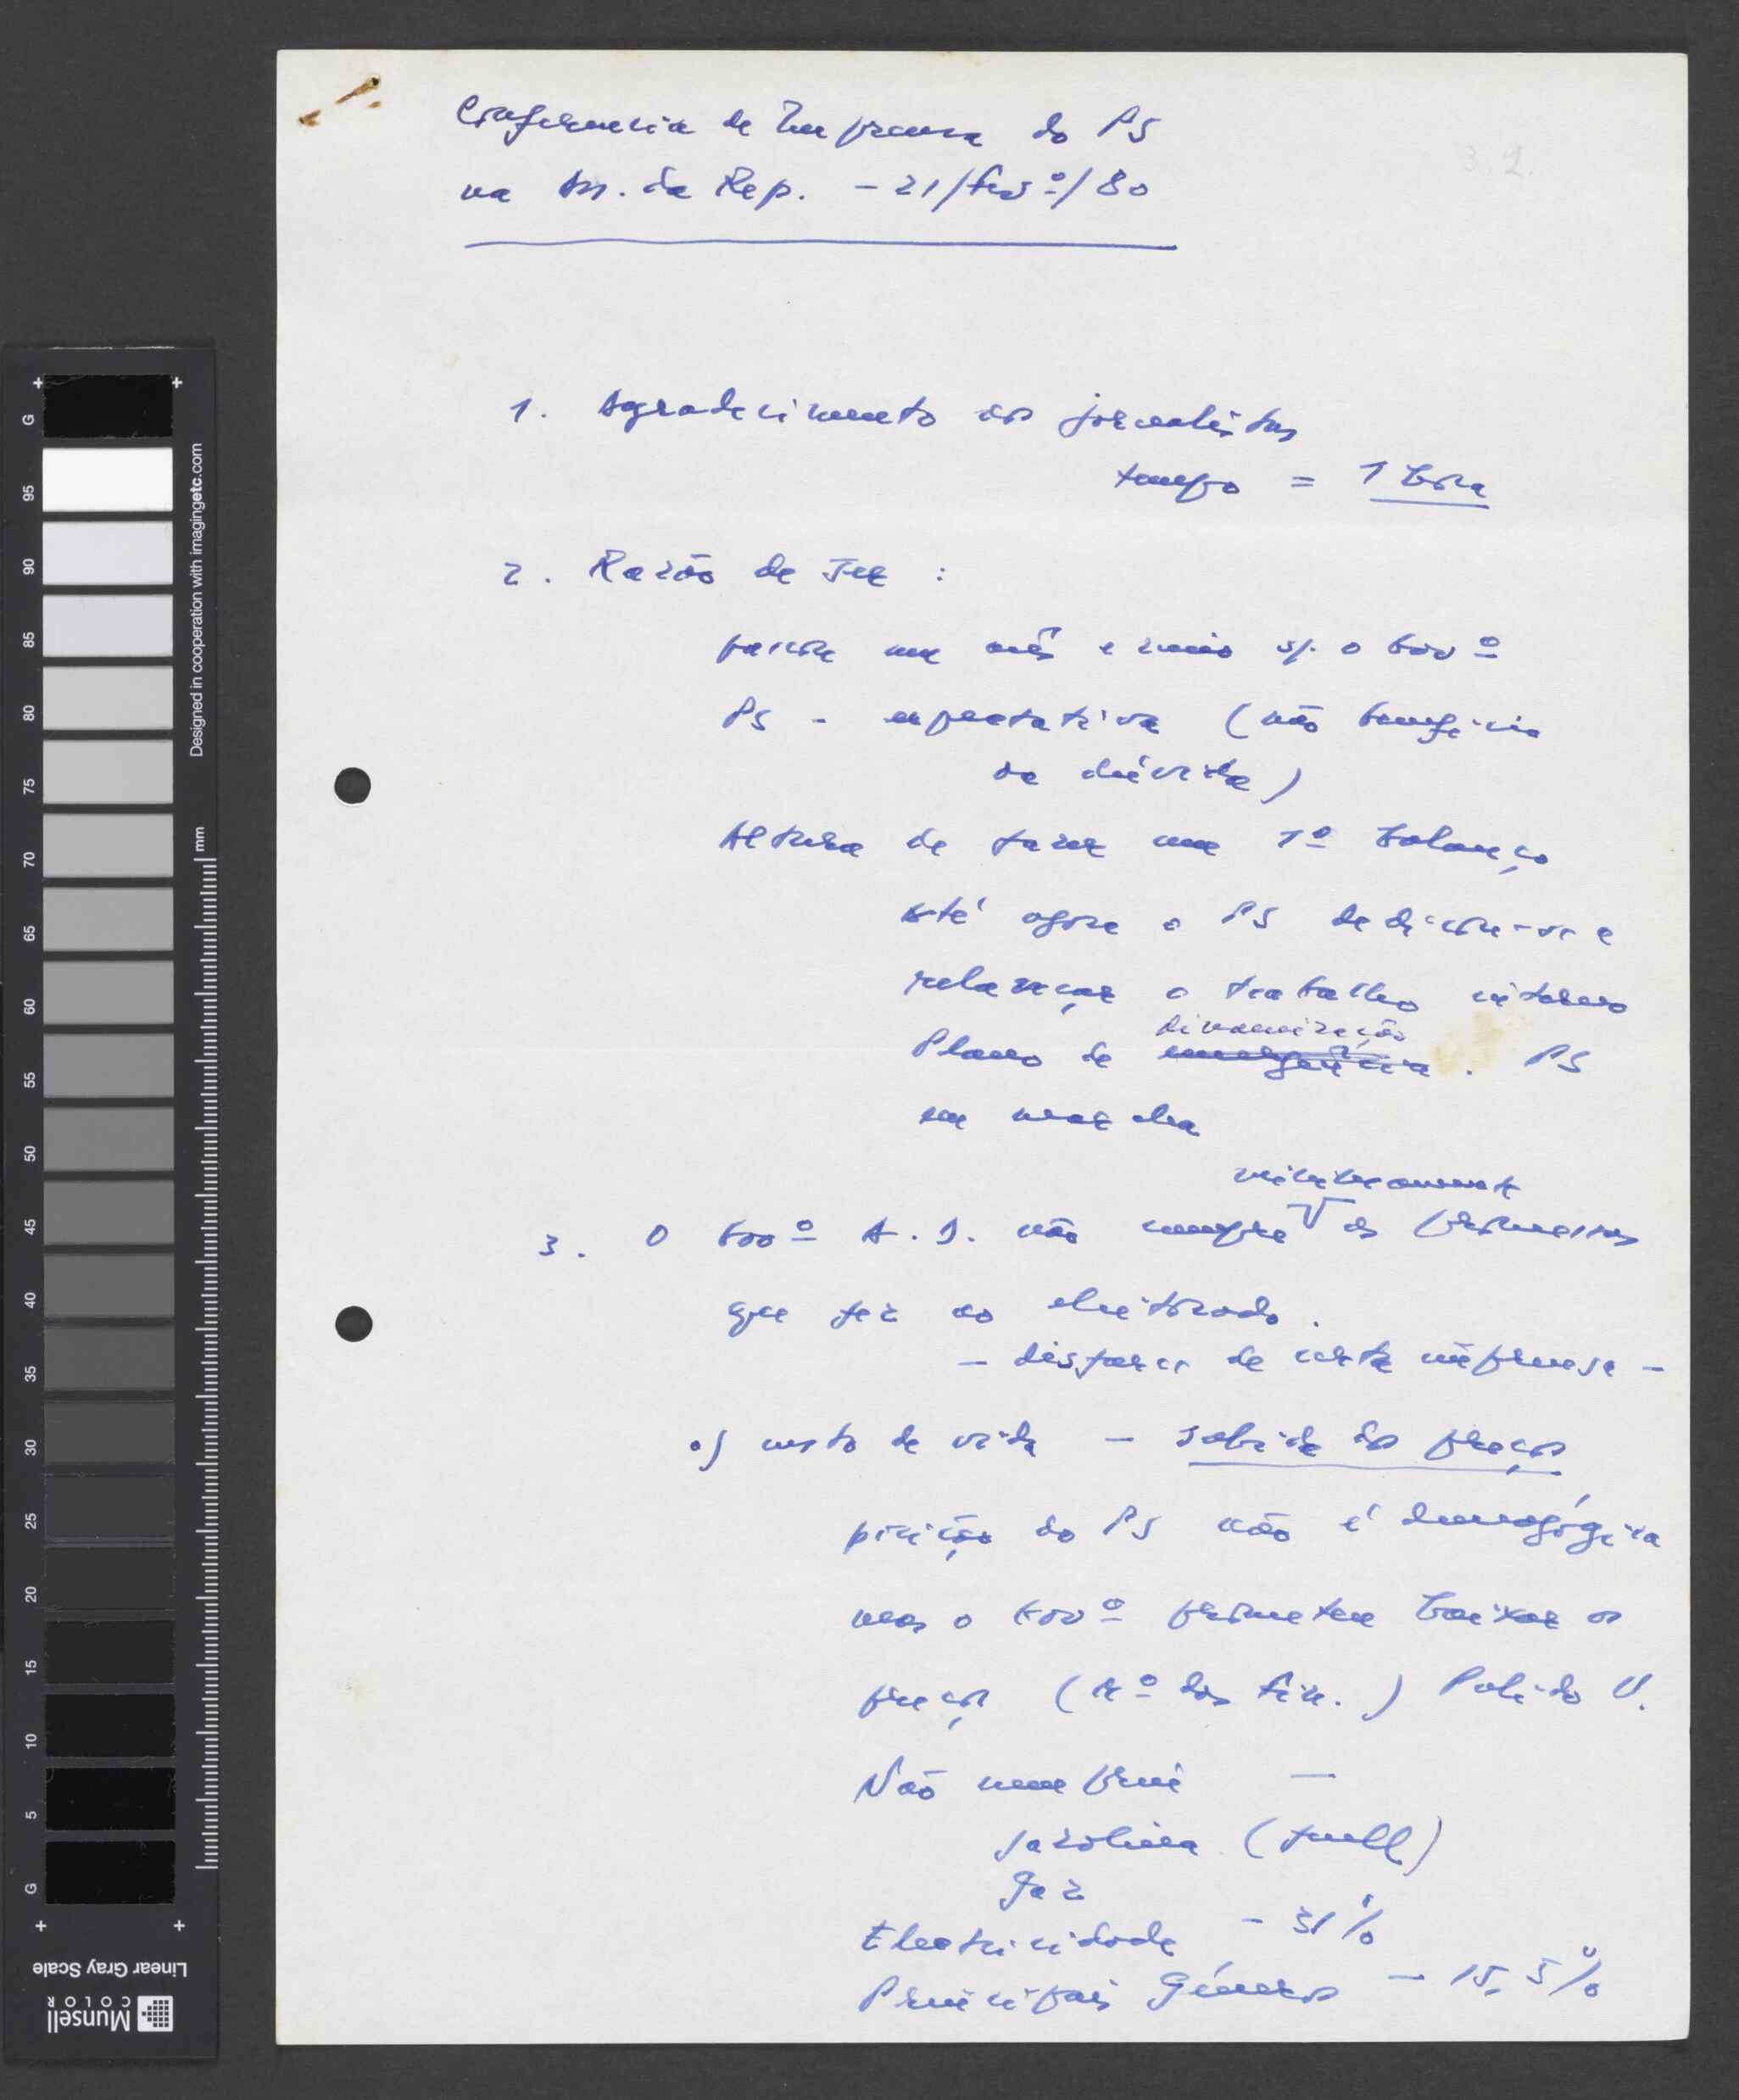 Conferencia de Imprensa do PS
na As. da Rep. - 21/fevº/80
3.2.
1. Agradecimento aos jornalistas
tempo = 1 hora
2. Razão de ser :
passou um mês e meio s/. o Govº
PS - expectativa (não benefício
da dúvida)
Altura de fazer um 1º balanço
Até agora o PS dedicou-se a
relançar o trabalho interno
dinamização
Plano de emergência. PS
em marcha
minimamente
3. O Govº A.D. não cumpre as promessas
que fez ao eleitorado.
- disfarce de certa imprensa -
a) custo de vida - subida dos preços
posição do PS não é demagógica
mas o Govº prometeu baixar os
preços (Mº das Fin.) Polido V.
Não cumpriu —
gasolina (fuell)
Gaz
Electricidade - 31%
Principais Géneros - 15,5%
G 95 90 85 80 75 70 65 60 55 50 45 40 35 30 25 20 15 10 5 G
Designed in cooperation with imagingetc.com
mm
Linear Gray Scale
Munsell
COLOR